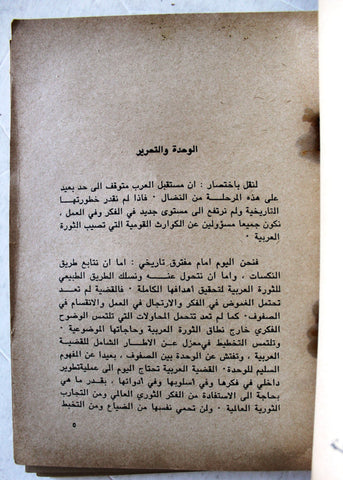 الوحدة والتحرير
لنقل باختصار : ان مستقبل العرب متوقف الى حد بعيد
على هذه المرحلة من النضال ٠ فاذا لم نقدر خطورتها
التاريخية ولم نرتفع الى مستوى جديد في الفكر وفي العمل ،
نكون جميعا مسؤولين عن الكوارث القومية التي تصيب الثورة
العربية ٠
فنحن اليوم امام مفترق تاريخي : اما ان نتابع طريق
النكسات ، واما ان نتحول عنه ونسلك الطريق الطبيعي
للثورة العربية لتحقيق اهدافها الكاملة ٠ فالقضية لم تعد
تحتمل الغموض في الفكر والارتجال في العمل والانقسام في
الصفوف٠ كما لم تعد تتحمل المحاولات التي تلتمس الوضوح
الفكري خارج نطاق الثورة العربية وحاجاتها الموضوعية ٠
وتلتمس التخطيط في معزل عن الاطار الشامل للقضية
العربية ، وتفتش عن الوحدة بين الصفوف ، بعيدا عن المفهوم
السليم للوحدة٠ القضية العربية تحتاج اليوم الى عمليةتطوير
داخلي في فكرها وفي اسلوبها وفي ادواتها ، بقدر ما هي
بحاجة الى الاغتناء من الفكر الثوري العالمي ومن التجارب
الثورية العالمية ٠ ولن تحمي نفسها من الضياع ومن التخبط
٥